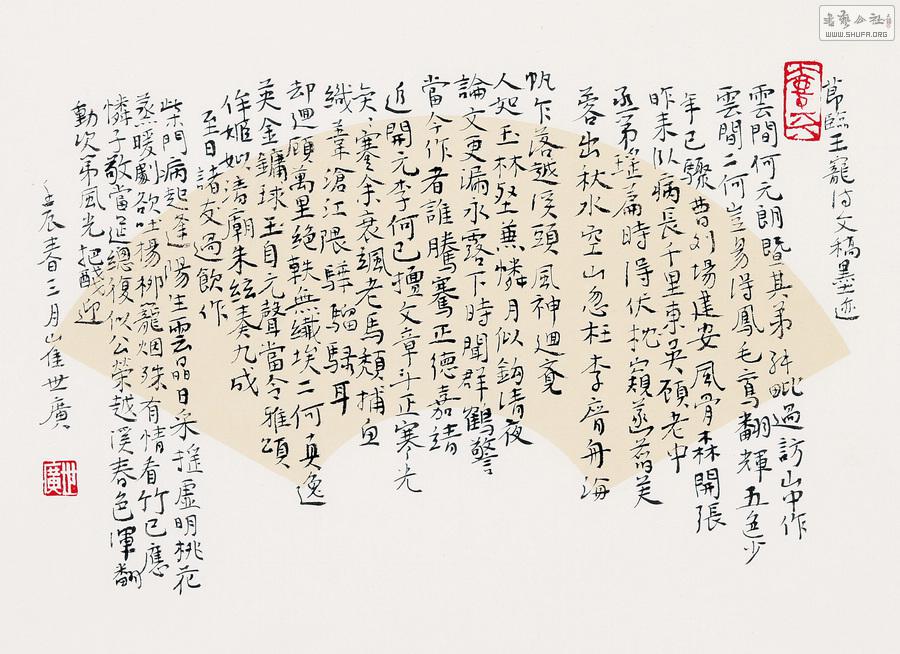 節臨王寵詩文稿墨迹
雲間何元朗暨其弟 毗過訪山中作
雲間二何豈易得鳳毛鸞翮輝五色少
年已驟曹刘場建安風骨森開張
昨来臥病長千里東吳顧老中
丞弟瑤篇時得伏枕窺菡萏芙
蓉出秋水空山忽枉李膺舟海
帆乍落越溪頭風神迥奪
人如玉林壑無憐月似鈎清夜
論文更漏永露下時聞群鶴警
當今作者誰騰騫正德嘉靖
追開元李何已擅文章斗正寒光
矣寥寥余衰颯老馬頹捕魚
織葦滄江隈驊騮騄耳
却迴顧萬里絕軼無纖埃二何真逸
英金鏞球玉自元聲當令雅頌
侔姬姒清廟朱絃奏九成
至日諸友過飲作
柴門病起逢陽生雲晶日柔搖虛明桃花
蒸暖劇欲吐楊柳籠烟殊有情看竹已應
憐子敬當筵總復似公榮越溪春色渾翻
動次第風光把醆迎
壬辰春三月 崔世廣
書藝公社
WWW.SHUFA.ORG
世廣